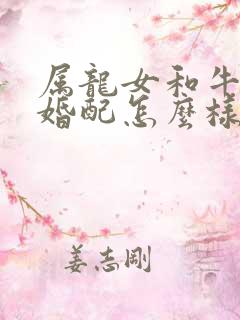 属龍女和牛
婚配怎麼樣
姜志剛